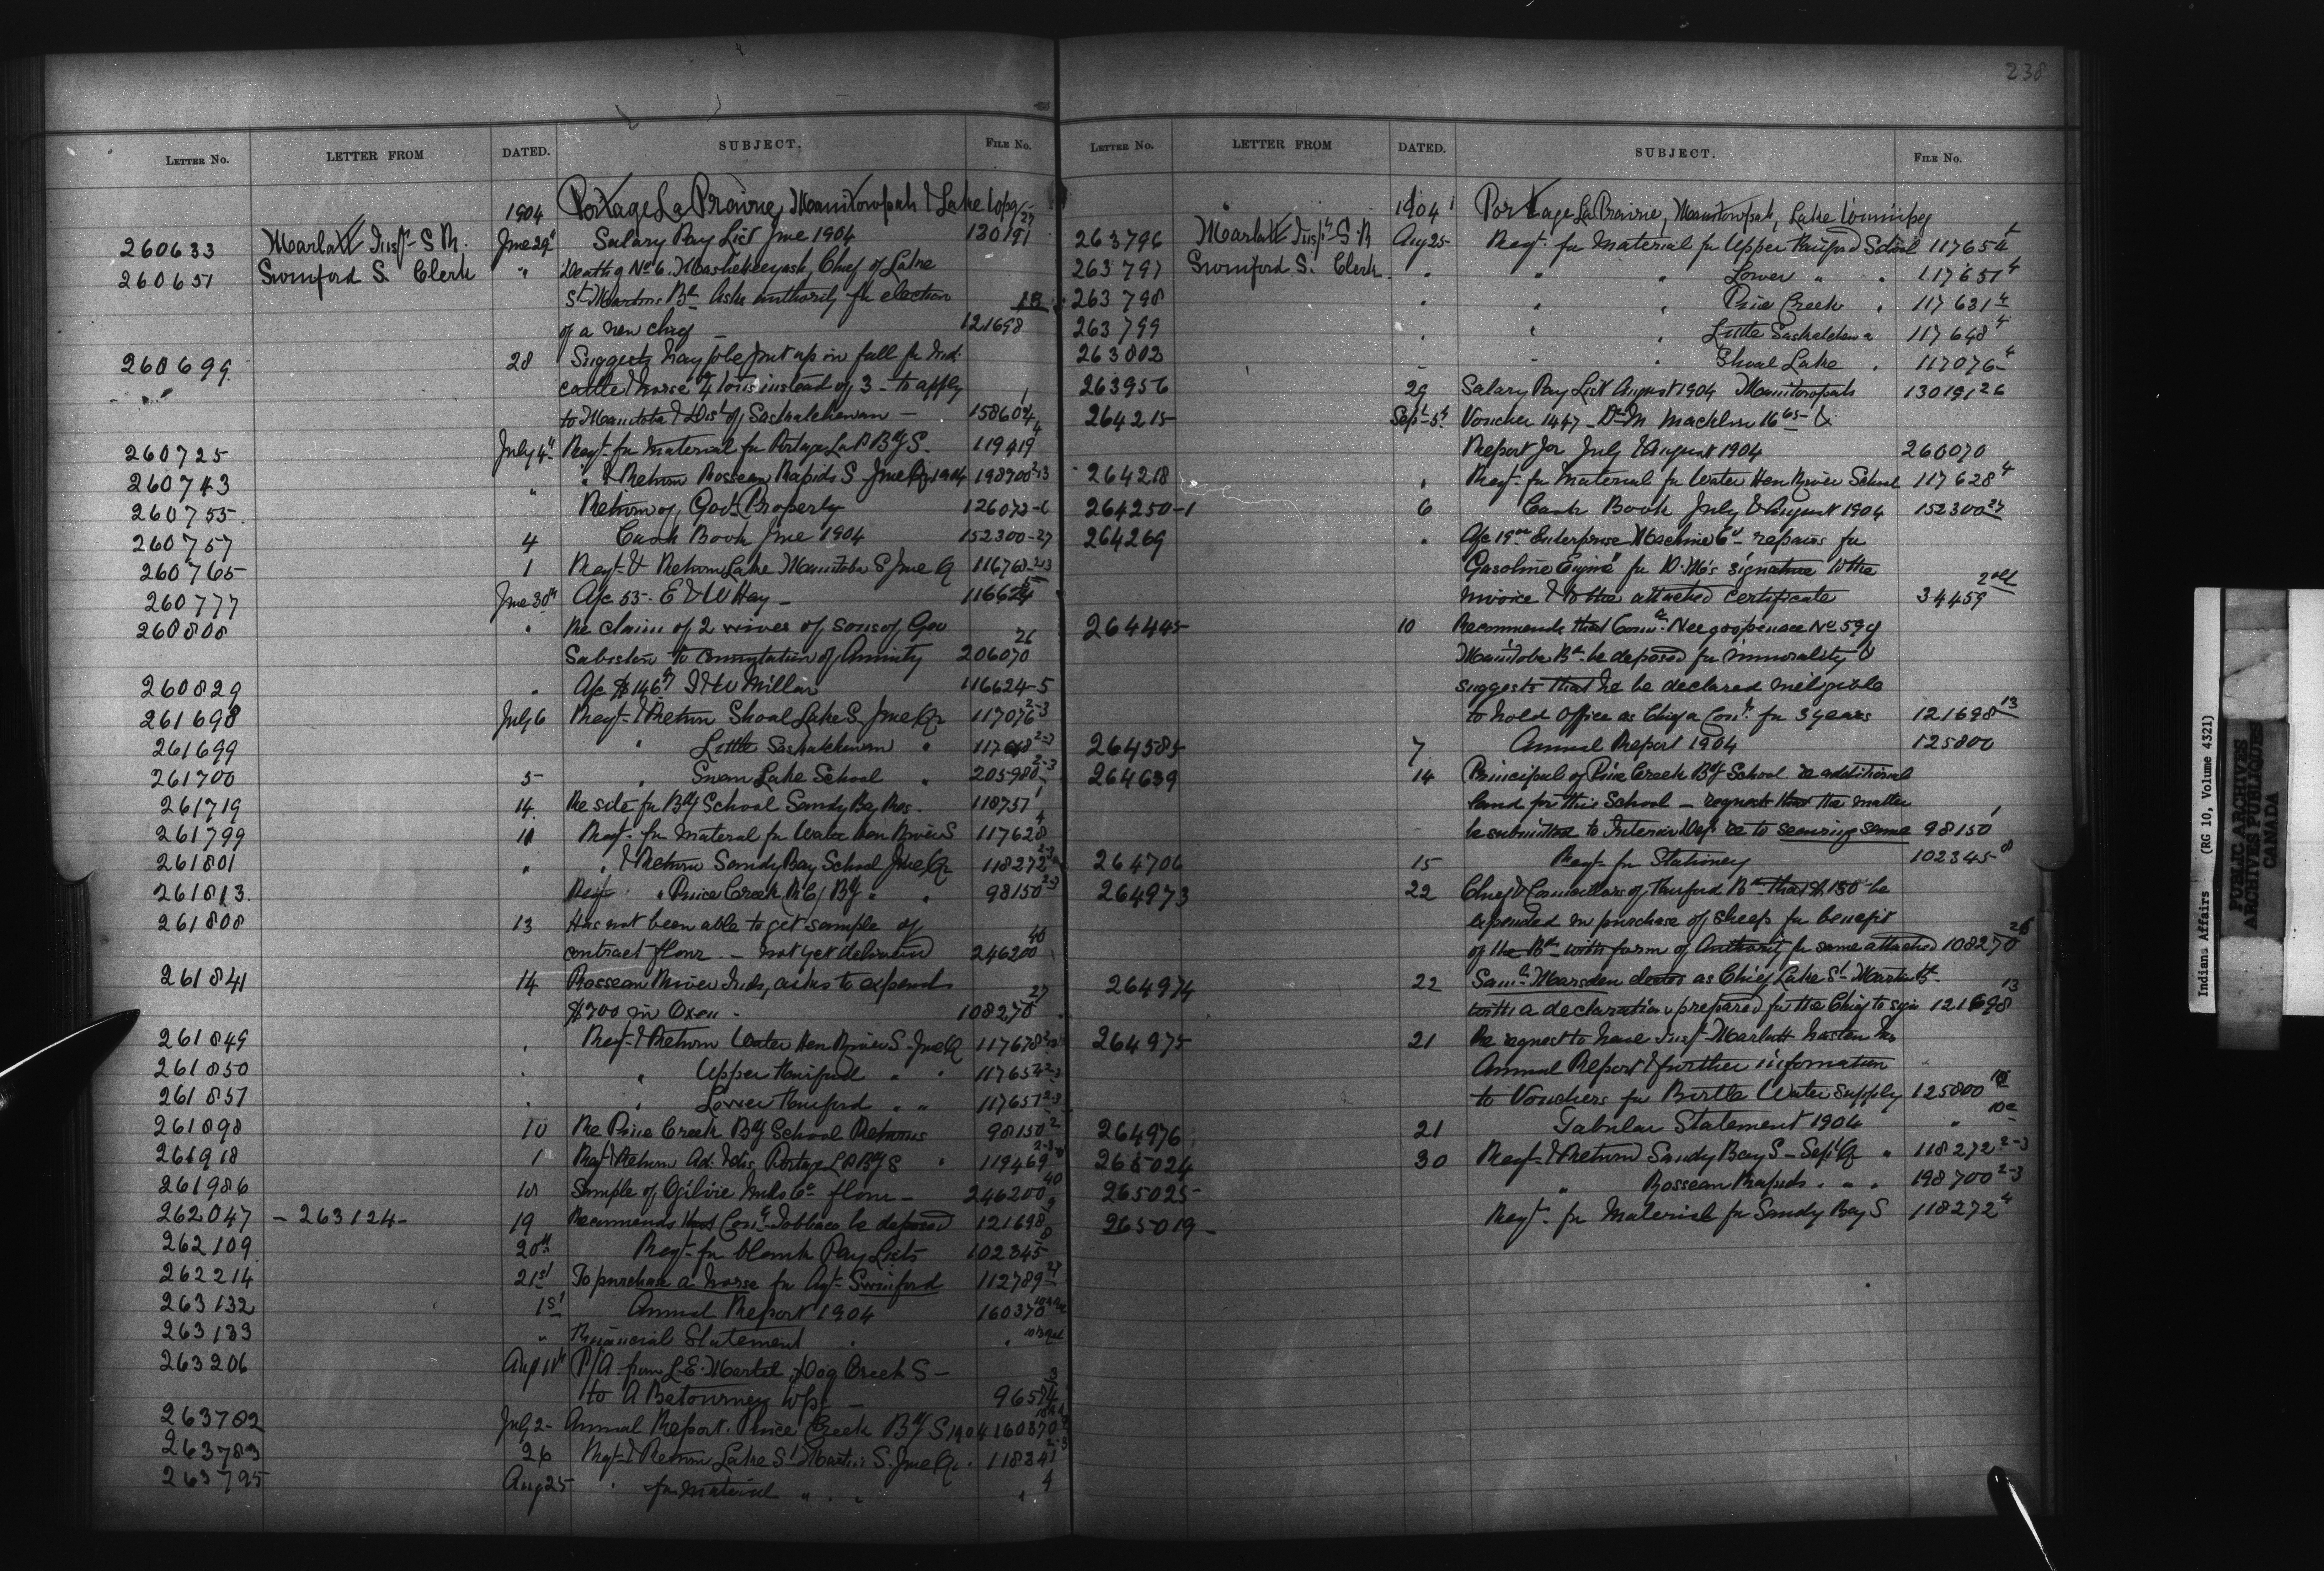 238
LETTER NO. LETTER FROM DATED. SUBJECT. FILE NO.
1904 Portage La Prairie, Manitowpah & Lake Wpg
260633 Marlatt Insp. S R. June 29 Salary Pay List June 1904 130191 27
260651 Swinford S. Clerk " Death of No 6. Chief of Lake
St Martins Bd Asks authority for election
of a new chief 121698 13
260699 28 Suggests hay to be put up in fall for Ind.
cattle & horses 4 tons instead of 3 - to apply
to Manitoba & Dist of Saskatchewan - 158602 1
260725 July 4 Reqt for Material for Portage La P Bdg S. 119419 4
260743 " & Return Rosseau Rapids S June Qr 1904 198700 2-3
260755 " Return of Govt Property 126072-6
260757 4 Cash Book June 1904 152300-27
260765 1 Reqt & Return Lake Manitoba S June Q 116768 2-3
260777 June 30th A/c 55. E & W Hay - 116624 5
260808 " Re claim of 2 wives of sons of Geo
to commutation of Annuity 206070 26
260829 " A/c $146 Millar 116624-5
261698 July 6 Reqt & Return Shoal Lake S. June Qr 117076 2-3
261699 " Little Saskatchewan " 117648 2-3
261700 5 " Swan Lake School " 205980 2-3
261719 14 Re site for Bdg School Sandy Bay Res. 118757 1
261799 11 Reqt for material for Water Hen River S 117628 4
261801 " " & Return Sandy Bay School June Qr 118272 2-3
261813 Reqt " Pine Creek R C Bdg " " 98150 2-3
261808 13 Has not been able to get sample of
contract flour. - not yet delivered 246200 40
261841 14 Rosseau River Inds, asks to expend
$700 in Oxen - 108270 27
261849 " Reqt & Return Water Hen River S. June Q 117628 2-3
261850 " " Upper Fairford " " 117654 2-3
261851 " " Lower Fairford " " 117651 2-3
261898 10 Re Pine Creek Bdg School Returns 98150 2
261918 1 Reqt & Return Ad. & Dis. Portage L P Bdg S " 119469 2-3
261986 18 Sample of Ogilvie Mills Co flour - 246200 40
262047 - 263124 - 19 Recommends that Conr Tobbaco be deposed 121698 13
262109 20th Reqt for blank Pay Lists 102345 8
262214 21st To purchase a horse for Agt Swinford 112789 27
263132 1st Annual Report 1904 160370
263133 " Financial Statement "
263206 Aug 11th P/A from L. E. Martel, Dog Creek S -
to A Betourney Wpg - 96574 3
263782 July 2 - Annual Report. Pine Creek Bdg S 1904 160370
263783 26 Reqt & Return Lake St Martins S. June Qr. 118341 2-3
263795 Aug 25 " for material " " " " 4
LETTER NO. LETTER FROM DATED. SUBJECT. FILE NO.
1904 Portage La Prairie, Manitowpah, Lake Winnipeg
263796 Marlatt Insp. S. R Aug 25 Reqt for Material for Upper Fairford School 117654 4
263797 Swinford S. Clerk " " " Lower " " 117651 4
263798 " " " Pine Creek " 117631 4
263799 " " " Little Saskatchewan 117648 4
263802 " " " Shoal Lake " 117076 4
263956 29 Salary Pay List August 1904 Manitowpah 130191 26
264215 Sept 5th Voucher 1447 - Dr M Macklin 16 65 - &
Report for July & August 1904 260070
264218 " Reqt for Material for Water Hen River School 117628 4
264250-1 6 Cash Book July & August 1904 152300 27
264269 " A/c 19 00 Enterprise Machine Co - repairs for
Gasoline Engine for D. M's signature to the
invoice & to the attached certificate 34459 2
264445 10 Recommends that Conr No 59 of
Manitoba Bd be deposed for immorality &
suggests that he be declared ineligible
to hold office as Chief or Conr for 3 years 121698 13
264585 7 Annual Report 1904 125800
264639 14 Principal of Pine Creek Bdg School re additional
land for this School - requests that the matter
be submitted to Interior Dept re to securing same 98150 1
264706 15 Reqt for Stationery 102345 8
264973 22 Chief & Councillors of Fairford Bd that $150 be
expended in purchase of sheep for benefit
of the Bd with form of Authority for same attached 108270 26
264974 22 Saml Marsden elected as Chief Lake St Martin Bd
with a declaration prepared for the Chief to sign 121698 13
264975 21 Re request to have Insp Marlatt hasten his
Annual Report & further information
to Vouchers for Birtle Water Supply 125800 10
264976 21 Tabular Statement 1904 "
265024 30 Reqt & Return Sandy Bay S - Sept Qr " 118272 2-3
265025 " Rosseau Rapids " " " 198700 2-3
265019 - Reqt for Material for Sandy Bay S 118272 4
Indians Affairs (RG 10, Volume 4321)
PUBLIC ARCHIVES
ARCHIVES PUBLIQUES
CANADA